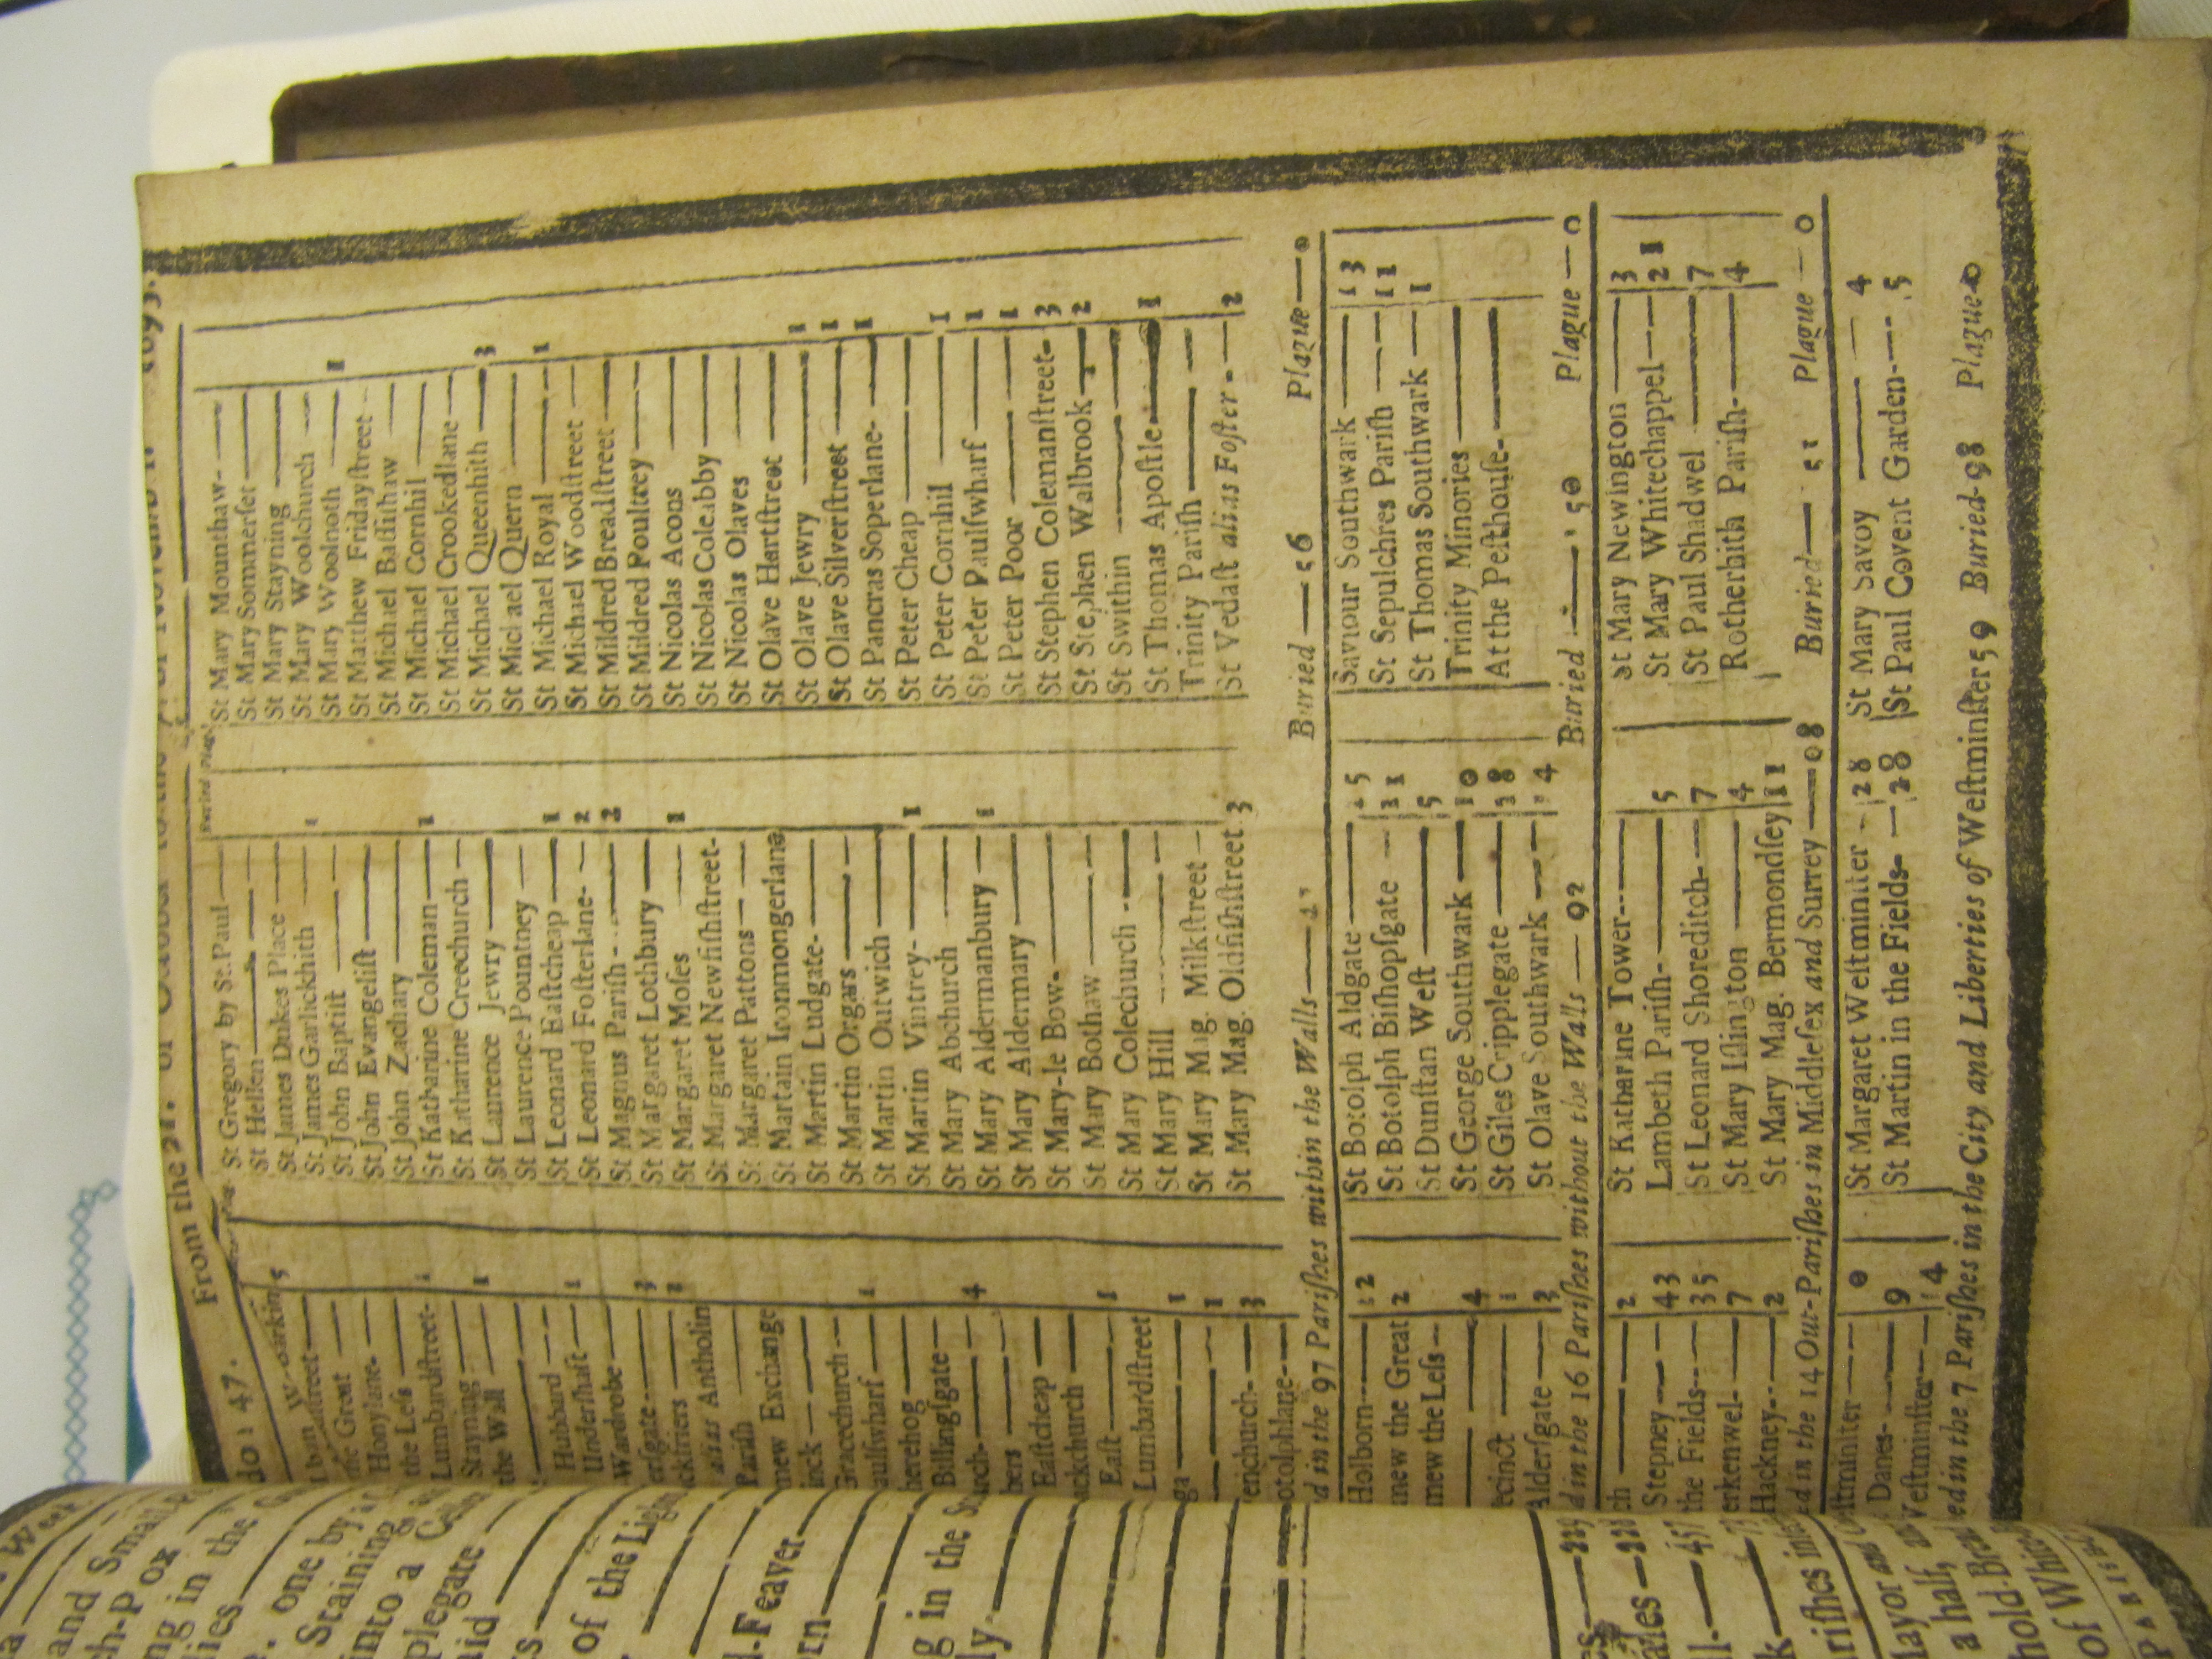 From the 31. of October to the
do: 47.
Buried Plag.
Barking 5
Breadstreet
the Great
Honylane
the Less
Lumbardstreet 1
Stayning
the Wall 1
Hubbard
Undershaft 1
Wardrobe
ersgate 3
ackfriers 1
alias Antholin
Parish
mew Exchange
inck
Gracechurch
aulswharf 1
herehog
Billingsgate
urch 4
bers
Eastcheap
ackchurch
East 1
Lumbardstreet
ga 1
1
enchurch 3
otolphlane
St Gregory by St.Paul
St Hellen
St James Dukes Place
St James Garlickhith 1
St John Baptist
St John Evangelist
St John Zachary
St Katharine Coleman 1
St Katharine Creechurch
St Laurence Jewry
St Laurence Pountney
St Leonard Eastcheap 1
St Leonard Fosterlane 2
St Magnus Parish 2
St Margaret Lothbury
St Margaret Moses 1
St Margaret Newfishstreet
St Margaret Pattons
St Martain Ironmongerlane
St Martin Ludgate
St Martin Orgars
St Martin Outwich
St Martin Vintrey 1
St Mary Abchurch
St Mary Aldermanbury 1
St Mary Aldermary
St Mary-le Bow
St Mary Bothaw
St Mary Colechurch
St Mary Hill
St Mary Mag. Milkstreet
St Mary Mag. Oldfishstreet 3
St Mary Mounthaw
St Mary Sommerset
St Mary Stayning
St Mary Woolchurch
St Mary Woolnoth 1
St Matthew Fridaystreet
St Michael Bassishaw
St Michael Cornhil
St Michael Crookedlane
St Michael Queenhith 3
St Michael Quern
St Michael Royal 1
St Michael Woodstreet
St Mildred Breadstreet
St Mildred Poultrey
St Nicolas Acons
St Nicolas Coleabby
St Nicolas Olaves
St Olave Hartstreet
St Olave Jewry 1
St Olave Silverstreet 1
St Pancras Soperlane 1
St Peter Cheap
St Peter Cornhil 1
St Peter Paulswharf 1
St Peter Poor 1
St Stephen Colemanstreet 3
St Stephen Walbrook 2
St Swithin
St Thomas Apostle 1
Trinity Parish
St Vedast alias Foster 2
d in the 97 Parishes within the Walls Buried — 56 Plague — 0
Holborn 12
mew the Great 2
mew the Less
4
ecinct 1
Aldersgate 3
St Botolph Aldgate 15
St Botolph Bishopsgate 11
St Dunstan West 5
St George Southwark 10
St Giles Cripplegate 18
St Olave Southwark 14
Saviour Southwark 13
St Sepulchres Parish 11
St Thomas Southwark 1
Trinity Minories
At the Pesthouse
d in the 16 Parishes without the Walls — 92 Buried — 150 Plague — 0
ch 2
Stepney 43
the Fields 35
erkenwel 7
Hackney 2
St Katharine Tower
Lambeth Parish 5
St Leonard Shoreditch 7
St Mary Islington 4
St Mary Mag. Bermondsey 11
St Mary Newington 3
St Mary Whitechappel 21
St Paul Shadwel 7
Rotherhith Parish 4
ed in the 14 Out-Parishes in Middlesex and Surrey — 08 Buried — 151 Plague — 0
estminster 0
Danes 9
Westminster 14
St Margaret Westminster 28
St Martin in the Fields 28
St Mary Savoy 4
St Paul Covent Garden 15
ed in the 7 Parishes in the City and Liberties of Westminster 59 Buried 98 Plague 0
Week
and Small
ch-Pox
ng in the
ties
one by a
Staining
into a
plegate
aid
of the
l-Feaver
rn
g in the
ly
229
aries — 228
l. — 457
k
rishes
layor and
a half,
hold Bread
of White
PARISH